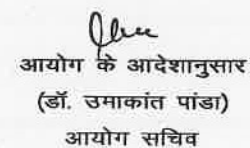 आयोग के आदेशानुसार
(डॉ. उमाकांत पांडा)
आयोग सचिव